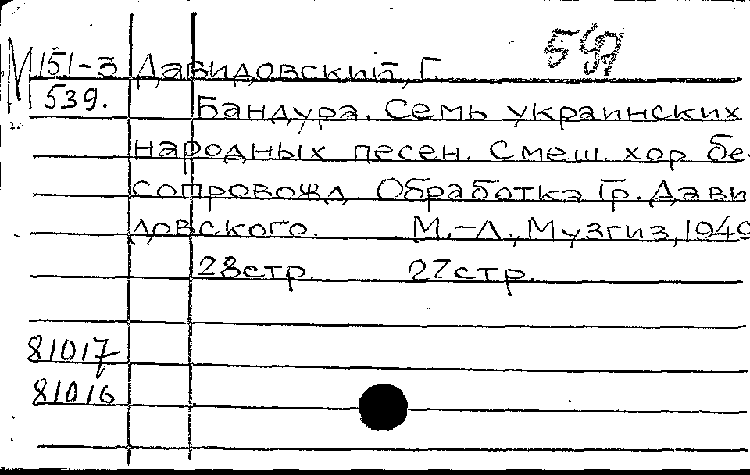 М 151-3 Давидовский, Г.
539. Бандура. Семь украинских
народных песен. Смеш. хор бе-
сопровожд Обработка Гр. Дави
довского. М.-Л., Музгиз, 1940
28стр. 27стр.
81017
81016